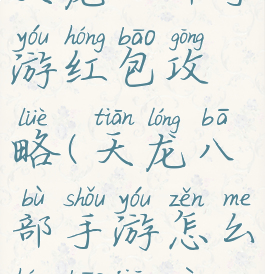 yóu hóng bāo gōng
游红包攻
lüè tiān lóng bā
略(天龙八
bù shǒu yóu zěn me
部手游怎么